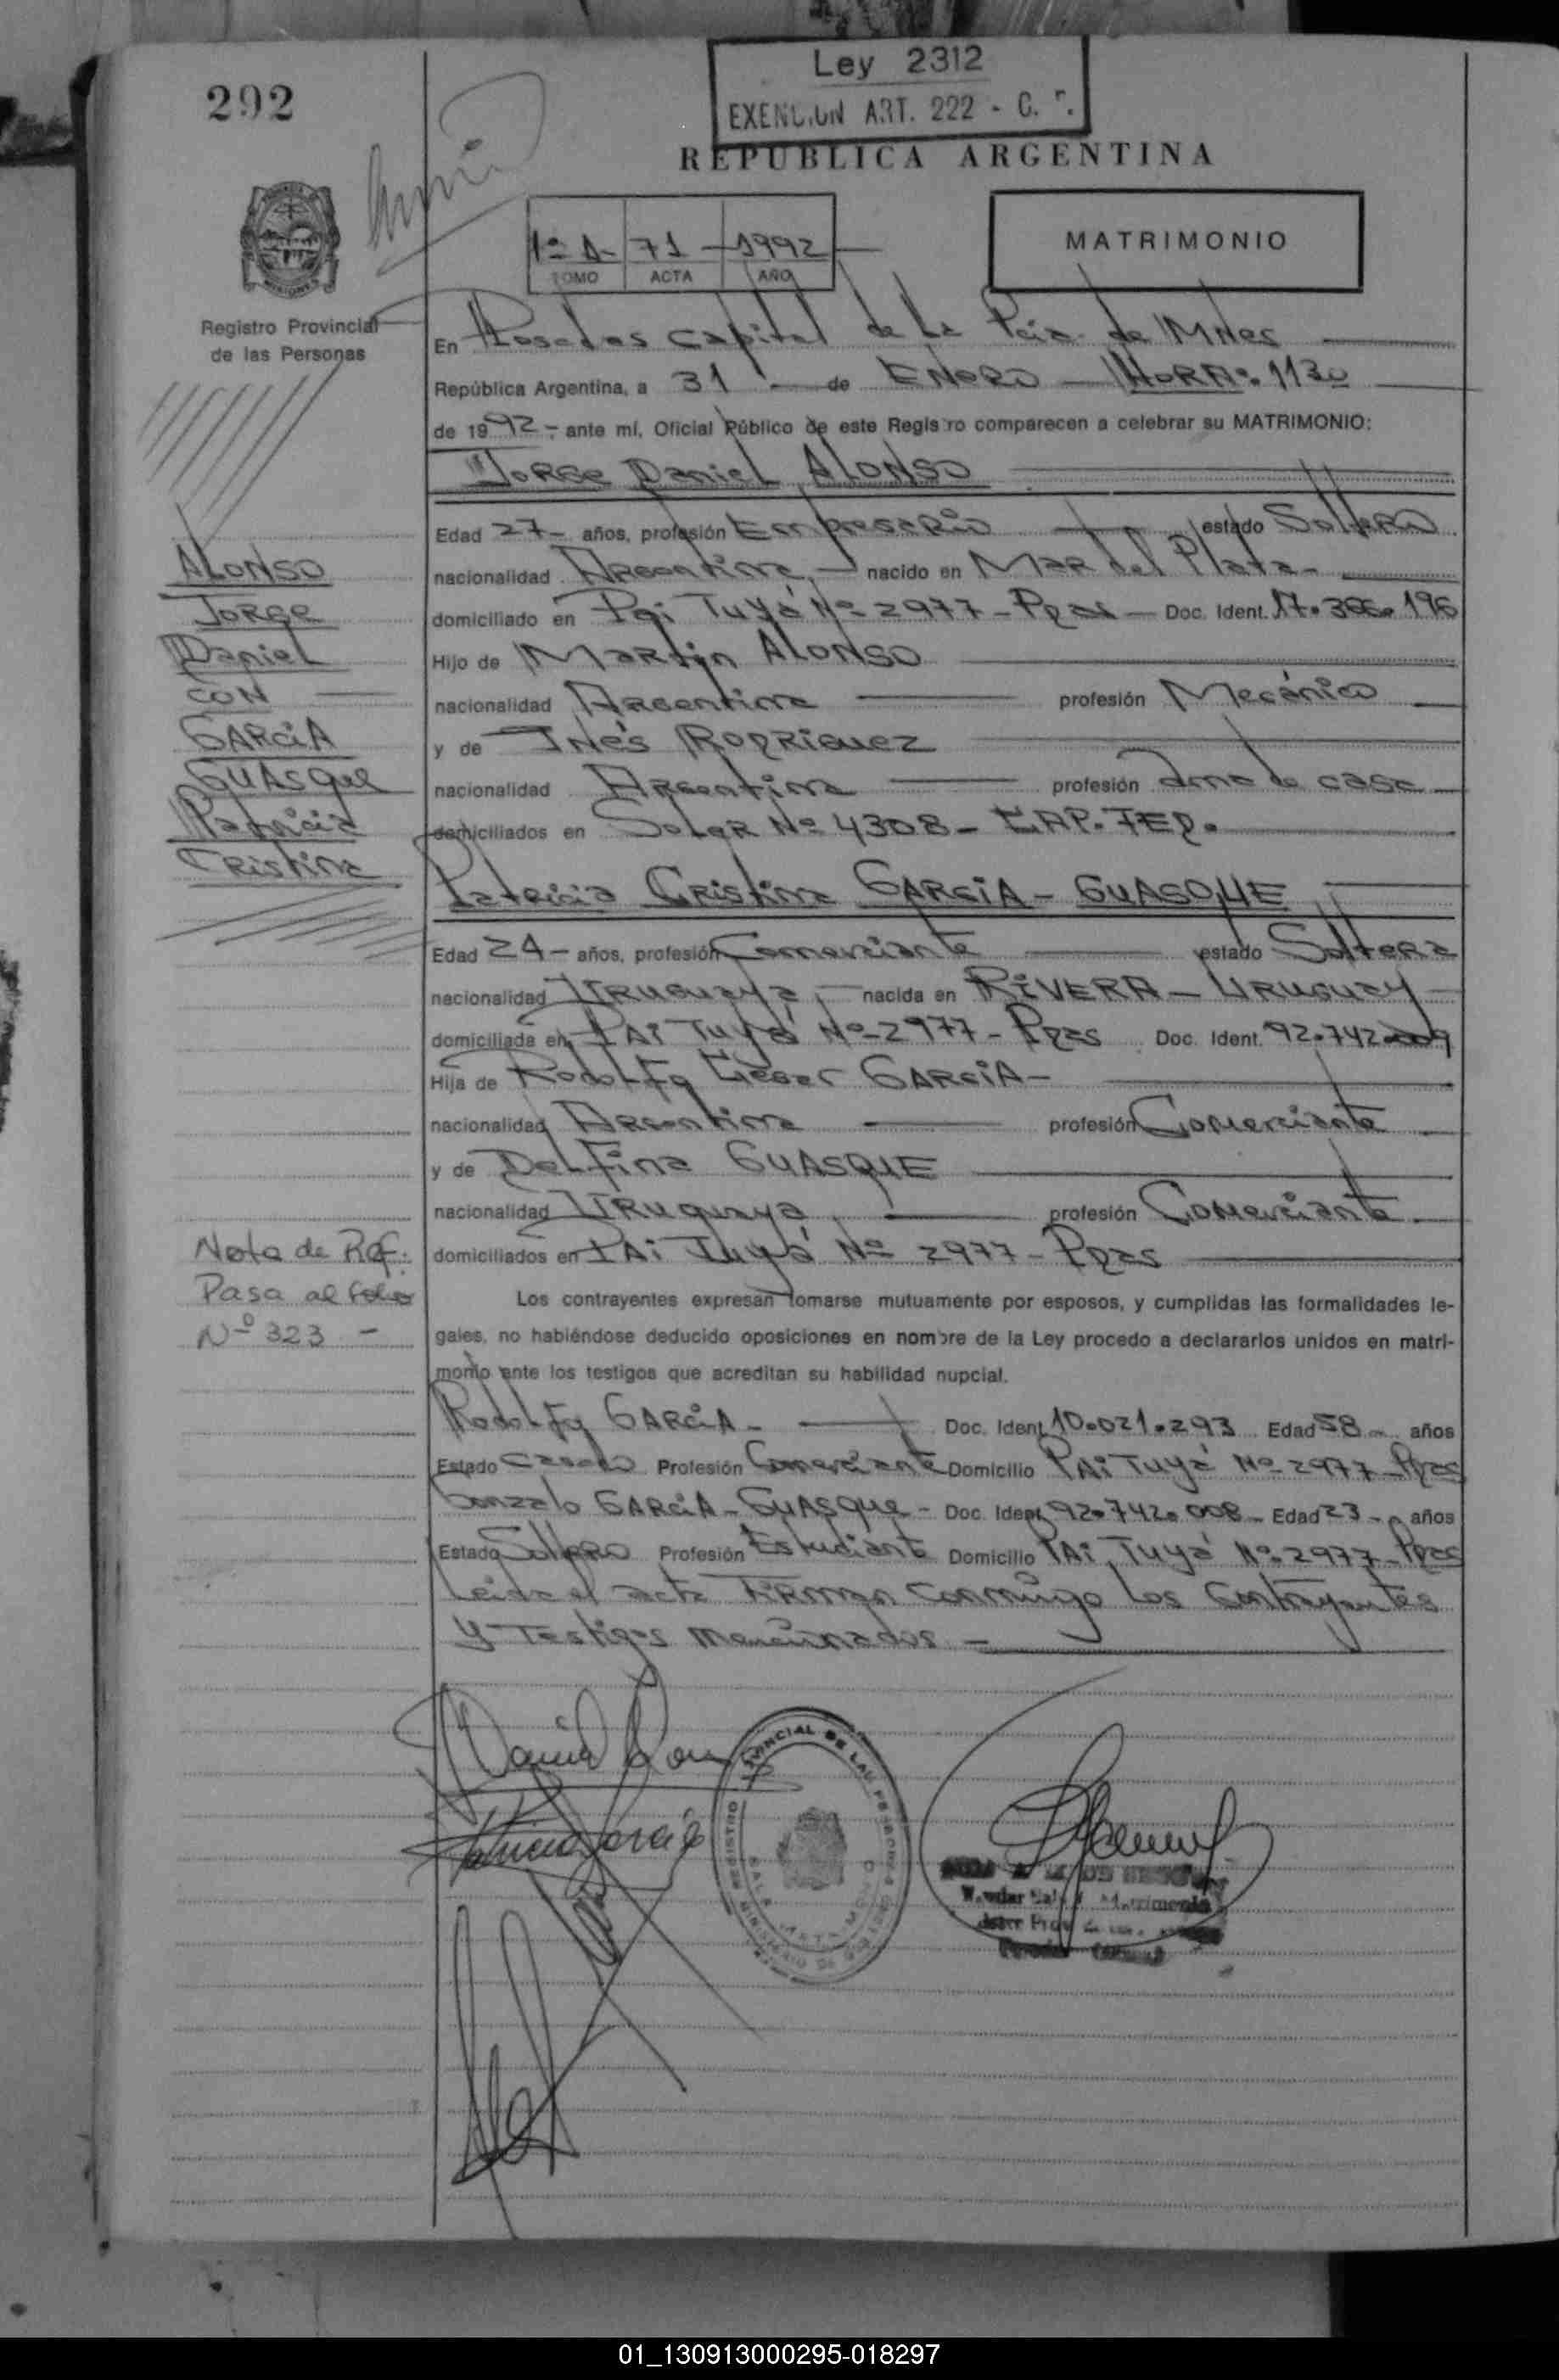 292
Ley 2312
EXENCION ART. 222 - C. F.
REPUBLICA ARGENTINA
1º A- 71 - 1992
TOMO ACTA AÑO
MATRIMONIO
Registro Provincial
de las Personas
En Posadas Capital de la Pcia de Mnes
República Argentina, a 31 de ENERO HORA: 1130
de 1992 - ante mí, Oficial Público de este Registro comparecen a celebrar su MATRIMONIO:
Jorge Daniel ALONSO
Edad 27 - años, profesión Empresario estado Soltero
nacionalidad Argentina - nacido en Mar del Plata -
domiciliado en Pai Tuyá Nº 2977 - Pdas - Doc. Ident. 17.366.196
Hijo de Martin ALONSO
nacionalidad Argentina profesión Mecánico
y de Inés RODRIGUEZ
nacionalidad Argentina profesión ama de casa
domiciliados en Soler Nº 4308 - CAP. FED.
Patricia Cristina GARCIA - GUASQUE
Edad 24 - años, profesión Comerciante estado Soltera
nacionalidad Uruguaya - nacida en RIVERA - URUGUAY
domiciliada en PAi Tuyá Nº 2977 - Pdas Doc. Ident. 92.742.009
Hija de Rodolfo Cesar GARCIA -
nacionalidad Argentina profesión Comerciante
y de Delfina GUASQUE
nacionalidad Uruguaya profesión Comerciante
domiciliados en PAi Tuyá Nº 2977 - Pdas
Los contrayentes expresan tomarse mutuamente por esposos, y cumplidas las formalidades le-
gales, no habiéndose deducido oposiciones en nombre de la Ley procedo a declararlos unidos en matri-
monio ante los testigos que acreditan su habilidad nupcial.
Rodolfo GARCIA - Doc. Ident. 10.021.293 Edad 58 - años
Estado Casado Profesión Comerciante Domicilio PAi Tuyá Nº 2977 - Pdas
Gonzalo GARCIA - GUASQUE - Doc. Ident. 92.742.008 - Edad 23 - años
Estado Soltero Profesión Estudiante Domicilio PAi Tuyá Nº 2977 - Pdas
Leida el acta Firman conmigo los Contrayentes
y Testigos mencionados -
ALONSO
Jorge
Daniel
CON
GARCIA
GUASQUE
Patricia
Cristina
Nota de Ref:
Pasa al folio
Nº 323 -
Patricia Garcia
REGISTRO PROVINCIAL DE LAS PERSONAS
01_130913000295-018297